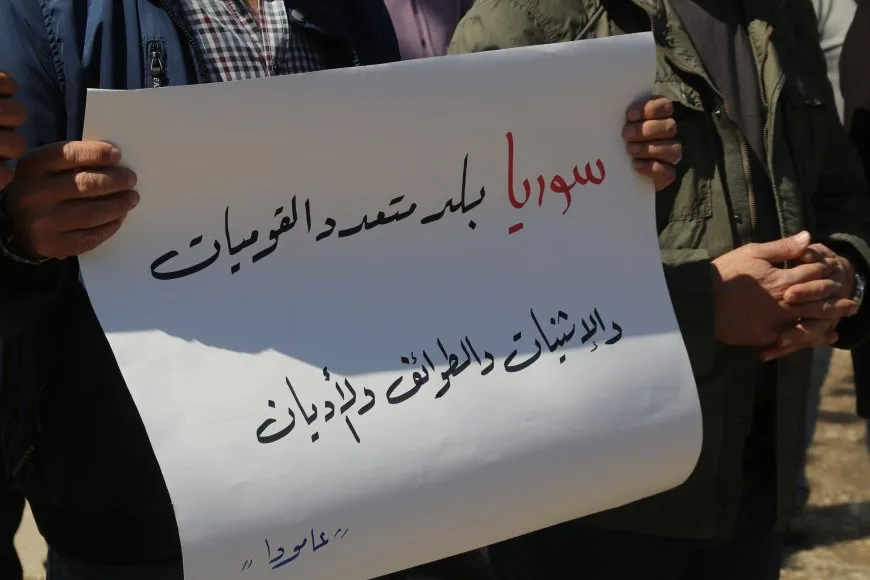 سوريا بلد متعدد القوميات
والإثنيات والطوائف والأديان
"عامودا"